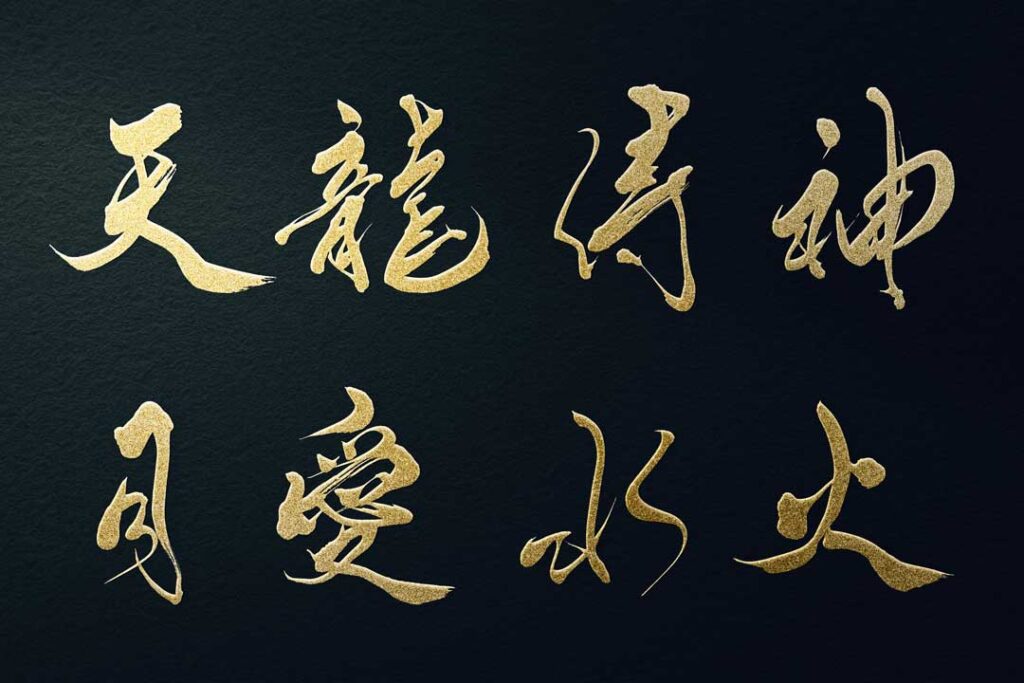 天龍濤神
月愛水火